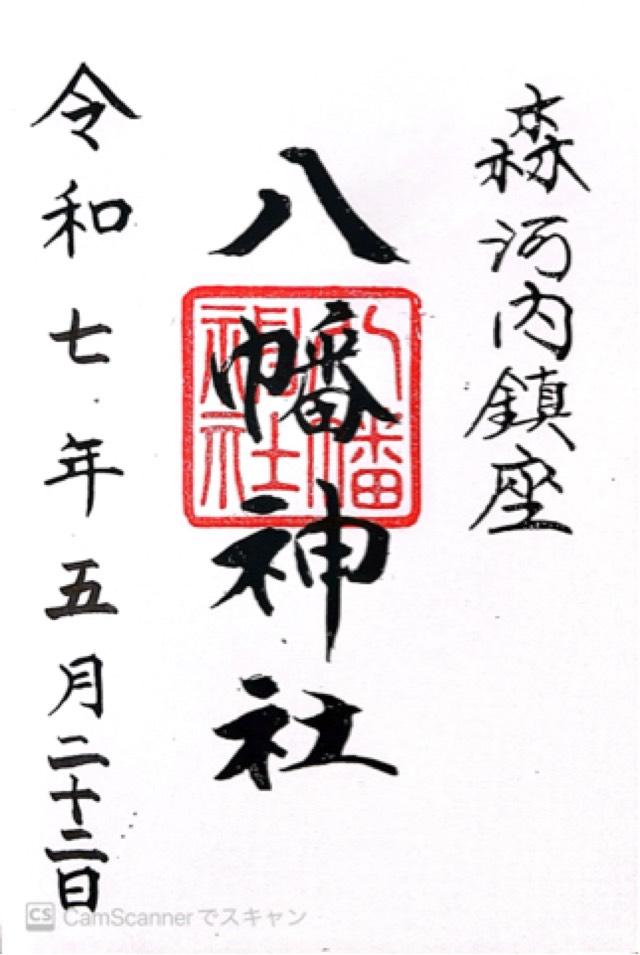 森河内鎮座
八幡神社
八幡神社
令和七年五月二十二日
CS CamScannerでスキャン